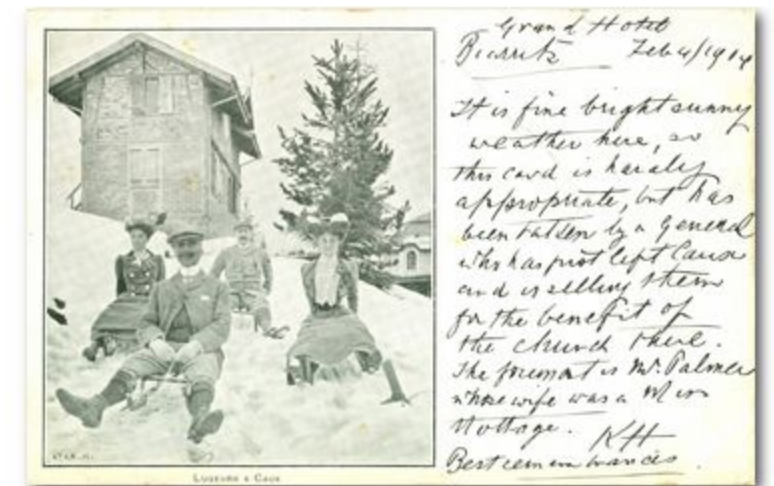 Grand Hotel
Biarritz Feb 4/1904
It is fine bright sunny
weather here, so
this card is hardly
appropriate, but has
been taken by a General
who has just left Caux
and is selling them
for the benefit of
the church there.
The foremost is Mr. Palmer
whose wife was a Miss
KH
Best remembrances.
LUGEURS A CAUX